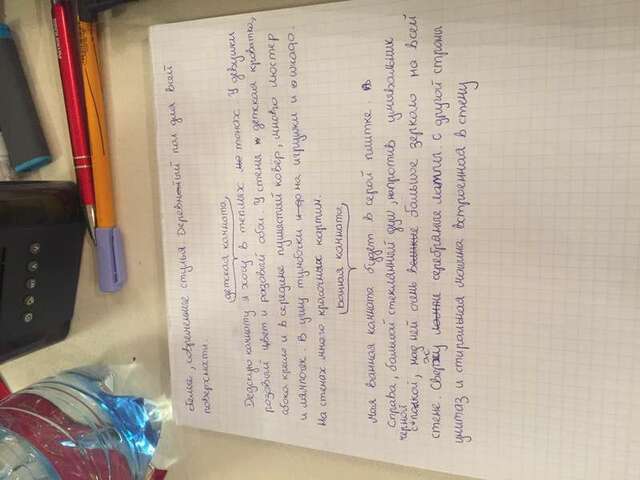 белые, современные стулья Деревнотый пол для всей
поверхности.
детская комната
Детскую комнату я хочу в теплых тонах. У девушки
розовый цвет и розовой обои. У стена детская кроватка,
абока кресло и в середине пушистый ковёр, много люстер
и лампочек. В углу тумбочки на игрушки и
На стенах много красочных картин.
Ванная комната
Моя ванная комната будет в серой плитке. В
Справа, большой стеклянный душ, напротив умывальник
с черной полкой, над ней очень большое зеркало на всей
стене. Сверху серебряное с другой стороны
унитаз и стиральная машина встроенная в стену